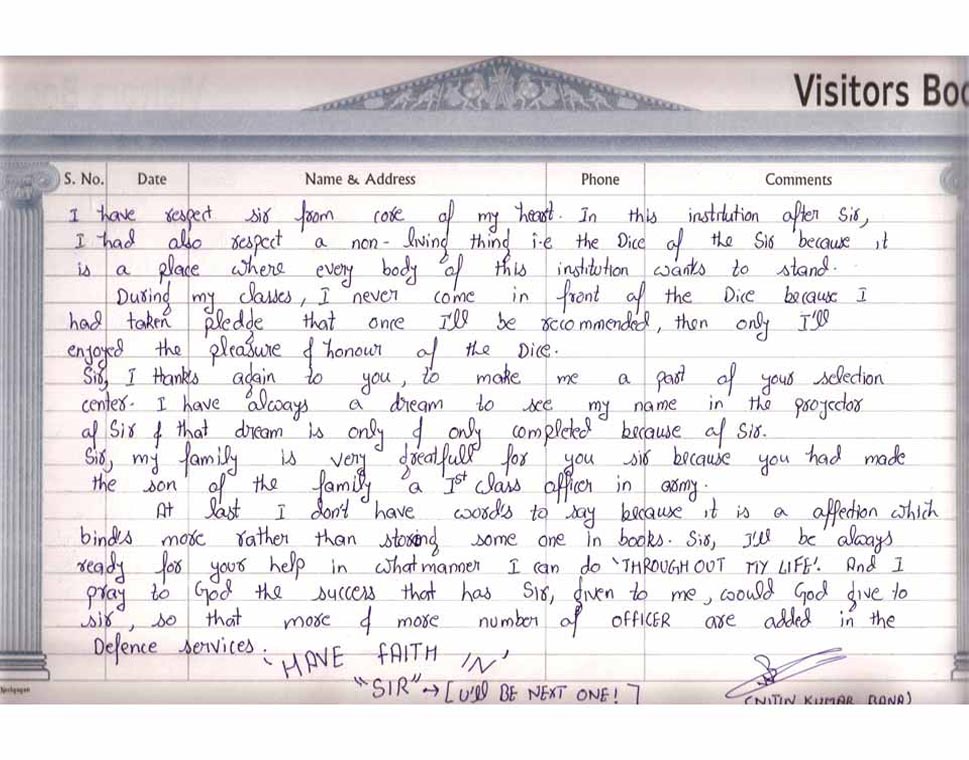 Visitors Boo
S. No. Date Name & Address Phone Comments
I have respect sir from core of my heart. In this institution after Sir,
I had also respect a non-living thing i.e the Dice of the Sir because it
is a place where every body of this institution wants to stand.
During my classes, I never come in front of the Dice because I
had taken pledge that once I'll be recommended, then only I'll
enjoyed the pleasure & honour of the Dice.
Sir, I thanks again to you, to make me a part of your selection
center. I have always a dream to see my name in the projector
of Sir & that dream is only & only completed because of Sir.
Sir, my family is very greatfull for you sir because you had made
the son of the family a 1st class officer in army.
At last I don't have words to say because it is a affection which
binds more rather than storing some one in books. Sir, I'll be always
ready for your help in what manner I can do 'THROUGH OUT MY LIFE'. And I
pray to God the success that has Sir, given to me, would God give to
sir, so that more & more number of OFFICER are added in the
Defence services.
'HAVE FAITH IN'
"SIR" → [U'll BE NEXT ONE!]
(NITIN KUMAR RANA)